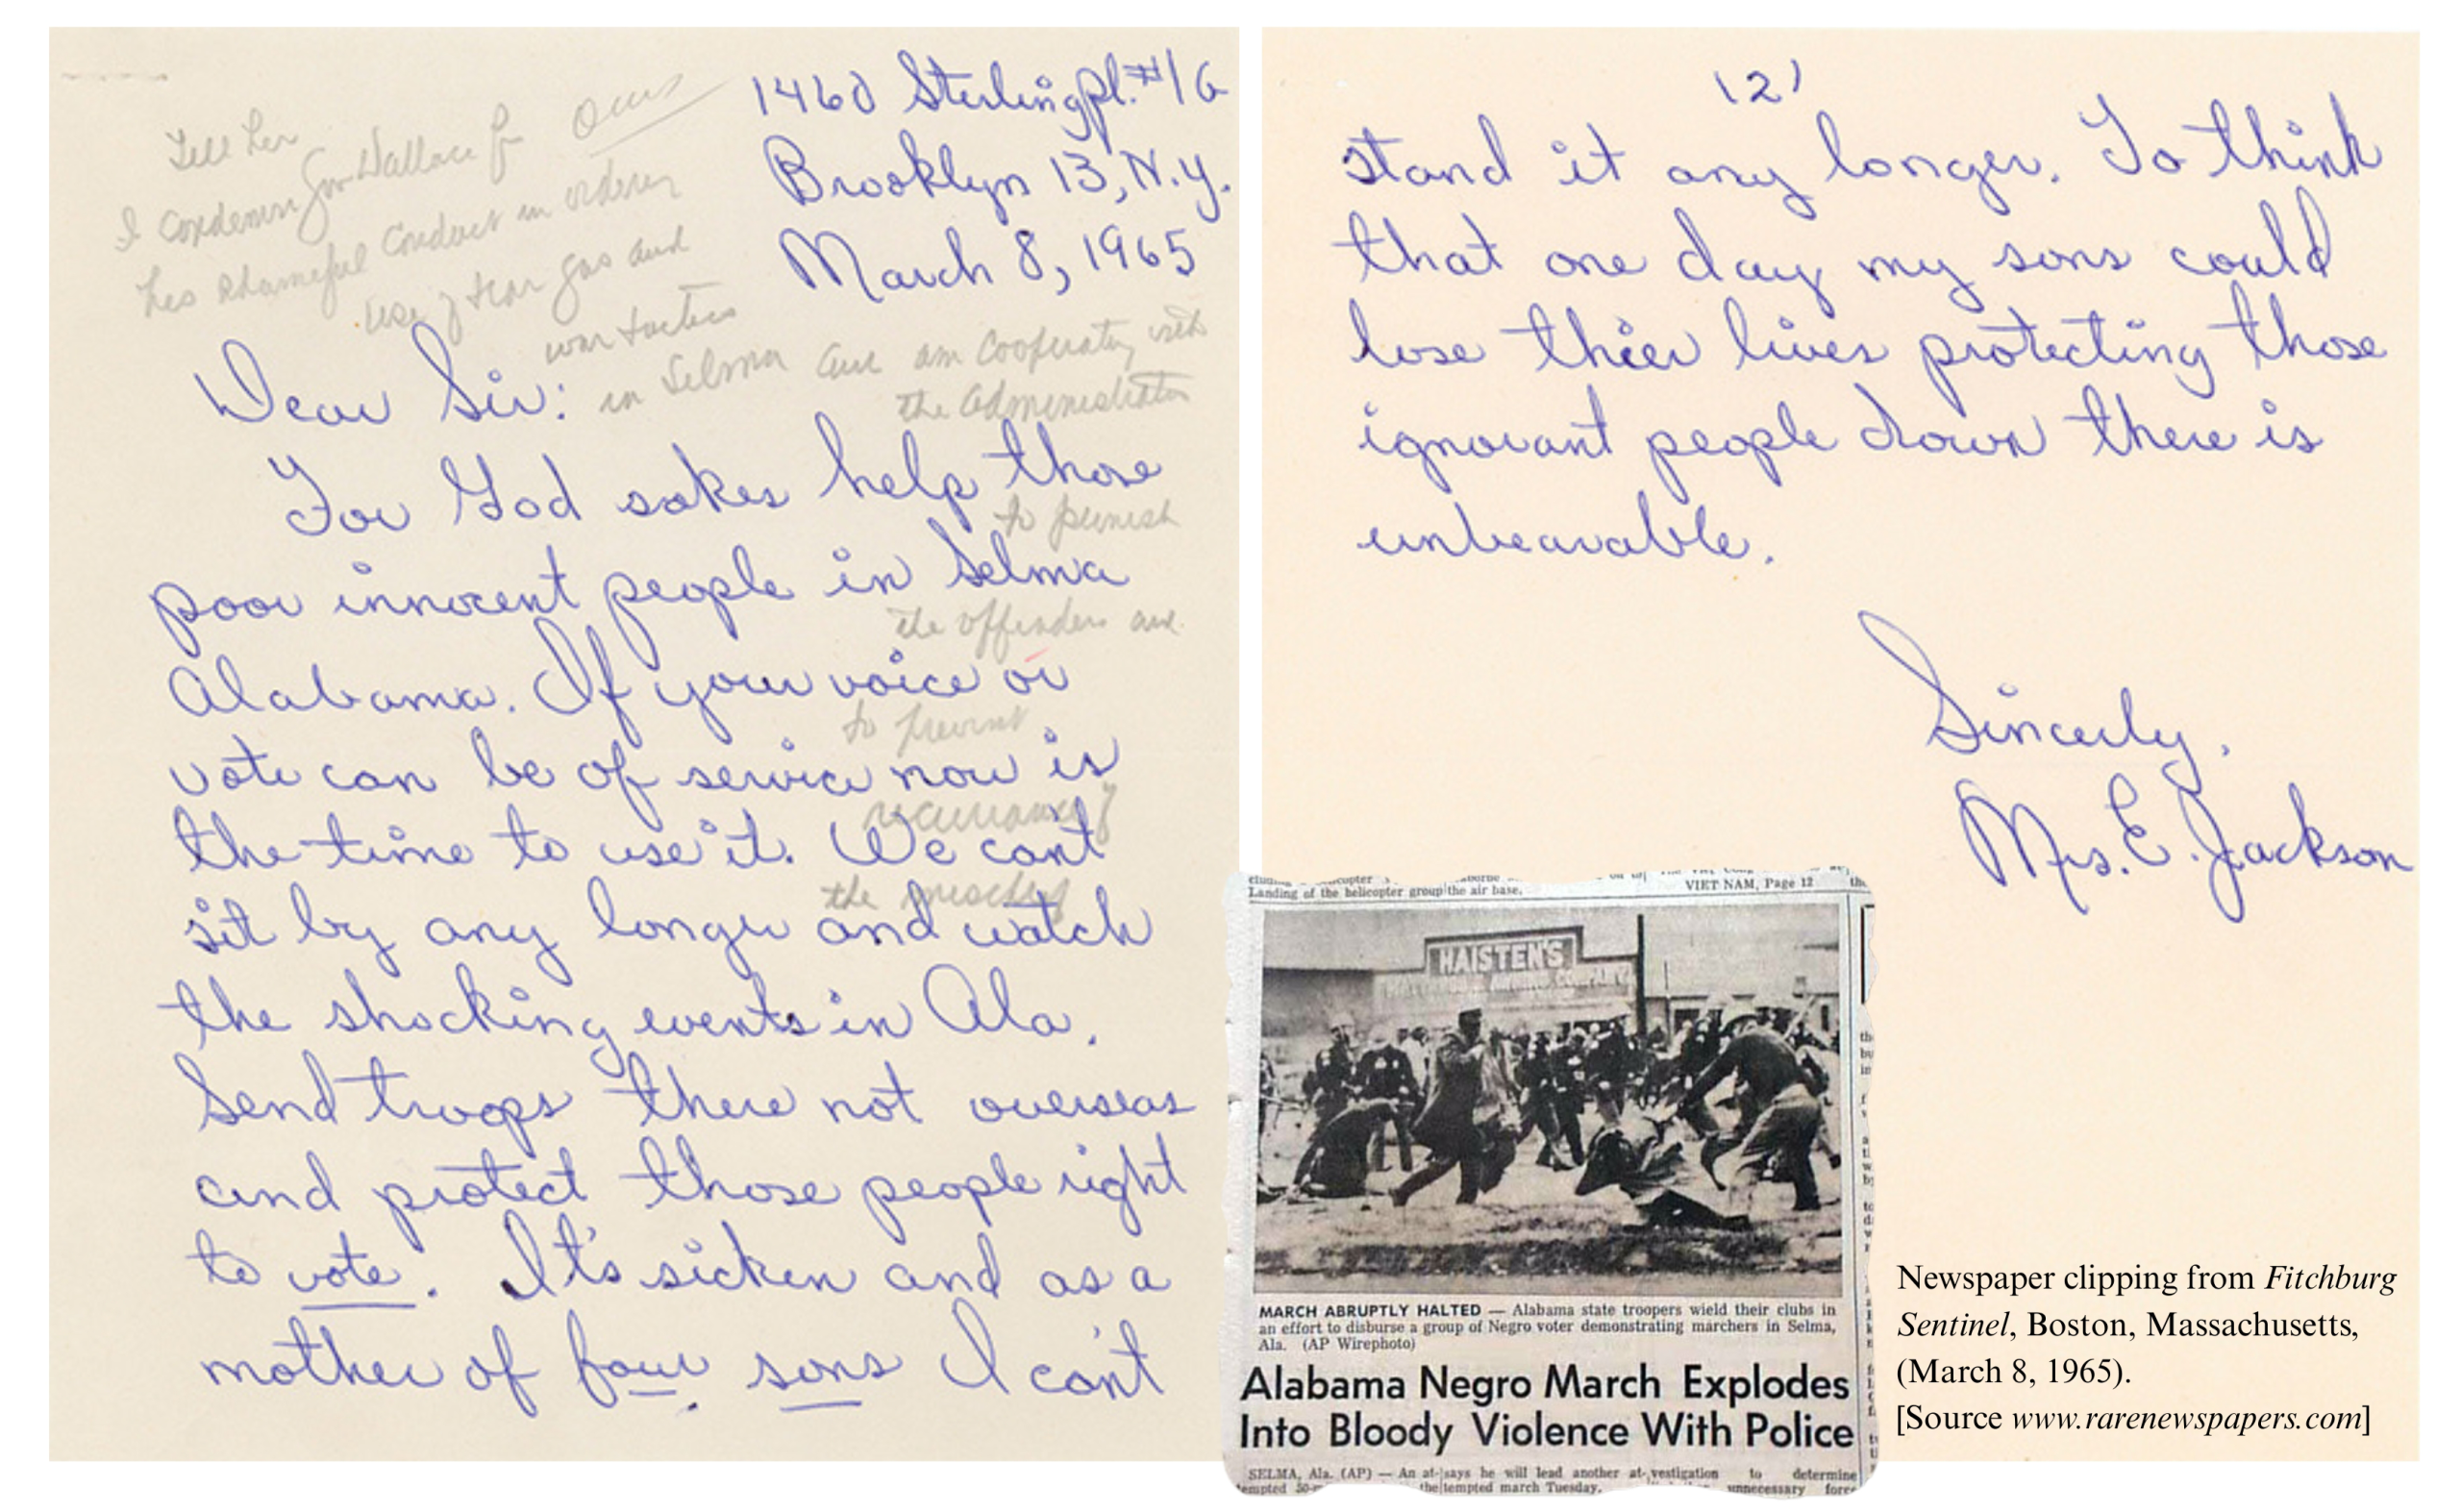 1460 Sterling Pl. #1G
Brooklyn 13, N.Y.
March 8, 1965
Tell her
I condemn Gov Wallace for
his shameful conduct in ordering
use of tear gas and
war tactics
in Selma and am cooperating with
the administration
to punish
the offenders and
to prevent
recurrance of
the
Dear Sir:
For God sakes help those
poor innocent people in Selma
Alabama. If your voice or
vote can be of service now is
the time to use it. We cant
sit by any longer and watch
the shocking events in Ala.
Send troops there not overseas
and protect those people right
to vote. It's sicken and as a
mother of four sons I can't
(2)
stand it any longer. To think
that one day my sons could
lose thier lives protecting those
ignorant people down there is
unbearable.
Sincerly,
Mrs. E. Jackson
Landing of the helicopter group the air base.
VIET NAM, Page 12
HAISTEN'S
COMPANY
MARCH ABRUPTLY HALTED — Alabama state troopers wield their clubs in
an effort to disburse a group of Negro voter demonstrating marchers in Selma,
Ala. (AP Wirephoto)
Alabama Negro March Explodes
Into Bloody Violence With Police
SELMA, Ala. (AP) — An at- says he will lead another at- vestigation to determine
tempted march Tuesday. unnecessary force
Newspaper clipping from Fitchburg
Sentinel, Boston, Massachusetts,
(March 8, 1965).
[Source www.rarenewspapers.com]